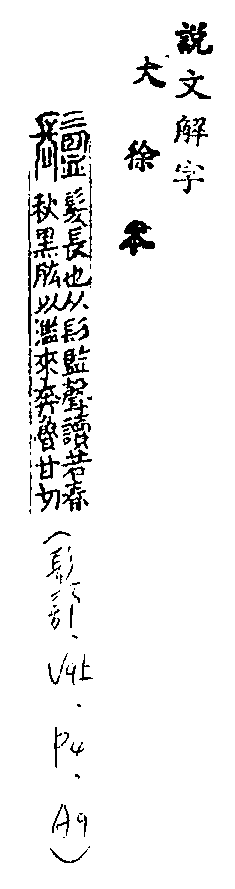 說文解字
大徐本
䰐
髮長也从髟監聲讀若春
秋黑肱以濫來奔魯甘切
(髟部、V9上、P4、A9)